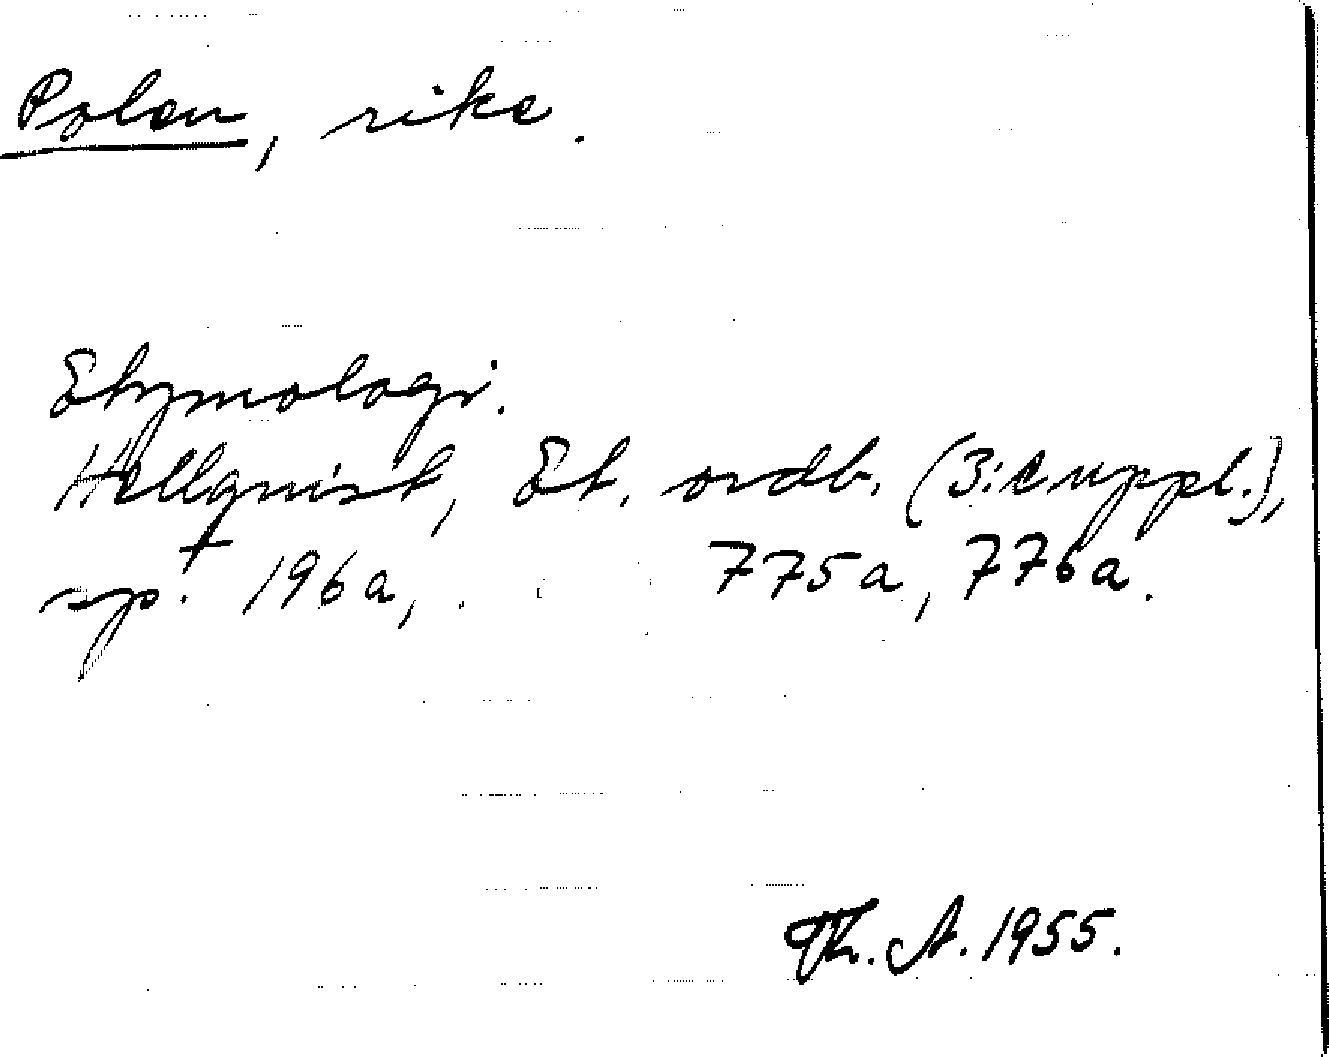 Polen, rike.
Etymologi.
Hellquist, Et. ordb. (3:e uppl.),
sp. 196a, 775a, 776a.
Th. A. 1955.